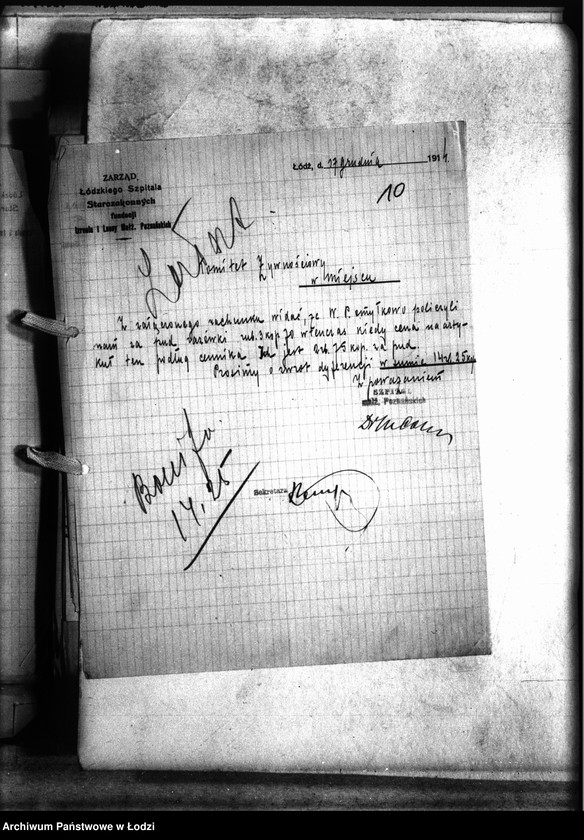 ZARZĄD
Łódzkiego Szpitala
Starozakonnych
fundacji
Izraela i Leony Małż. Poznańskich
Łódź, d. 17 grudnia 1914.
10
Komitet Żywnościowy
w miejscu
Z załączonego rachunku widać, że W. P. omyłkowo policzyli
nam za pud rub. 3 kop 70 wtenczas kiedy cena na arty-
kuł ten podług cennika jest rub. 75 kop. za pud
Prosimy o zwrot dyferencji w sumie 14 r. 25 kop
Z poważaniem
SZPITAL
małż. Poznańskich
Bonifa
14,25
Sekretarz
Archiwum Państwowe w Łodzi